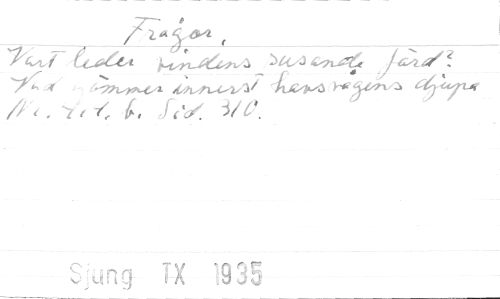 Frågor.
Vart leder vindens susande färd?
Vad gömmer innerst havsvågens djupa
6. Sid. 310.
Sjung TX 1935